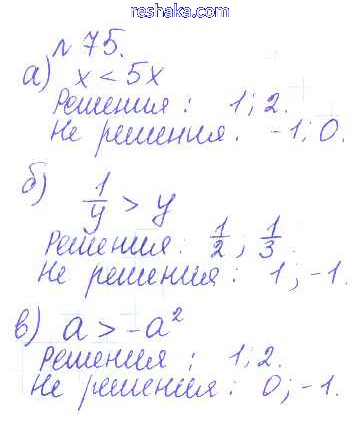 reshaka.com
№ 75.
а) x < 5x
Решения : 1; 2.
Не решения. -1; 0.
б) 1/y > y
Решения: 1/2 ; 1/3.
Не решения : 1 ; -1.
в) a > -a²
Решения ; 1; 2.
Не решения : 0; -1.